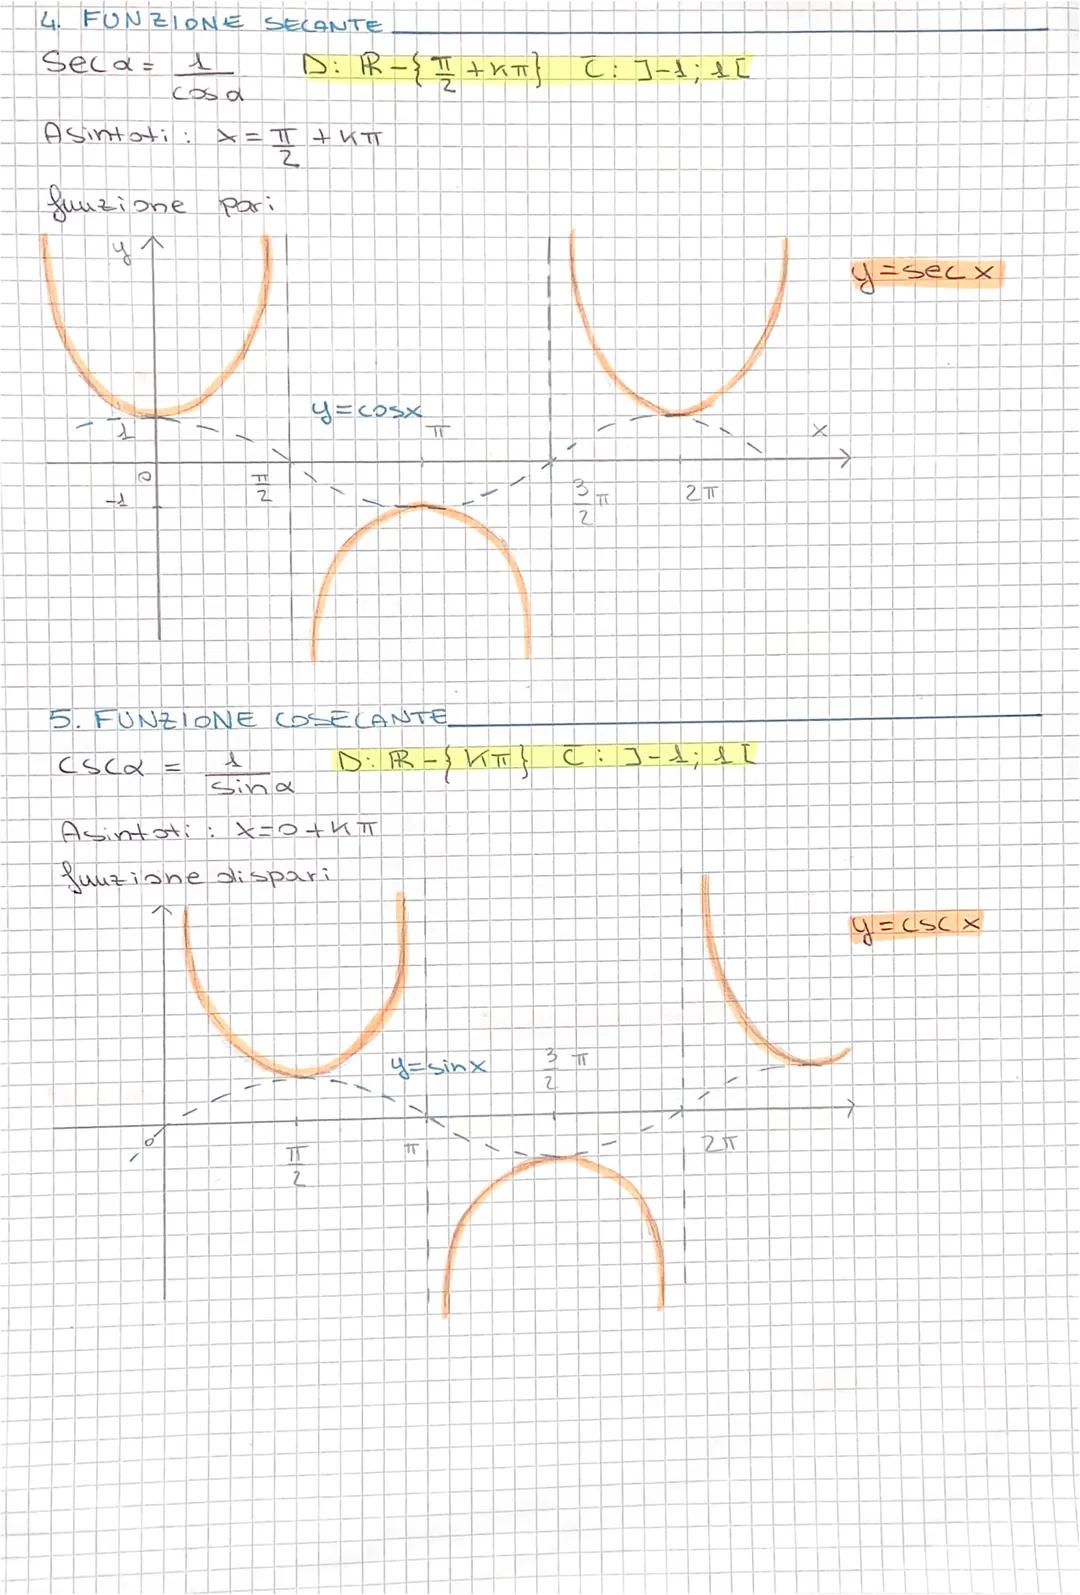 4. FUNZIONE SECANTE
Sec α = 1/cos α D: ℝ-{π/2 + Kπ} C: ]-1; 1[
Asintoti: x = π/2 + Kπ
funzione pari
y
y = sec x
y = cos x
1
π
x
0
-1
π/2
3/2 π
2π
5. FUNZIONE COSECANTE
CSC α = 1/sin α D: ℝ-{Kπ} C: ]-1; 1[
Asintoti: x = 0 + Kπ
funzione dispari
y = csc x
y = sin x
3/2 π
0
π/2
π
2π